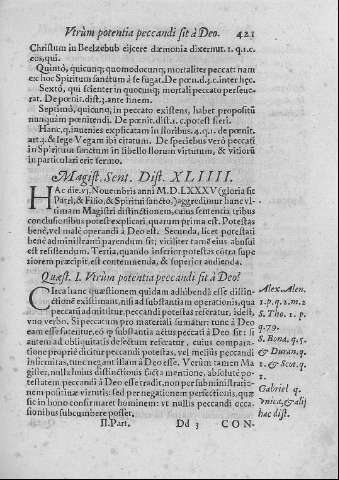 Virùm potentia peccandi sit à Deo. 421
Christum in Beelzebub eijcere dæmonia dixerunt. 1. q. 1. c.
eos, qui.
Quintò, quicunq; quomodocunq; mortaliter peccat: nam
ex hoc Spiritum sanctum à se fugat. De pœnit. d. 3. c. inter hęc.
Sextò, qui scienter in quocunq; mortali peccato perseue-
rat. De pœnit. dist. 3. ante finem.
Septimò, quicunq; in peccato existens, habet propositũ
nunquam pœnitendi. De pœnit. dist. 1. c. potest fieri.
Hanc. q. inuenies explicatam in floribus. 4. q. 1. de pœnit.
art. 3. & lege Vegam ibi citatum. De speciebus verò peccati
in Spiritum sanctum in libello florum virtutum, & vitiorũ
in particulari erit sermo.
Magist. Sent. Dist. XLIIII.
HAc die. vj. Nouembris anni M.D.LXXXV (gloria sit
Patri, & Filio, & Spiritui sancto) aggredimur hanc vl-
timam Magistri distinctionem, cuius sententia tribus
conclusionibus potest explicari, quarum prima est. Potestas
bené, vel malè operandi à Deo est. Secunda, licet potestati
bené administrati parendum sit; viliter tamē eius abusui
est resistendum. Tertia, quando inferior potestas cōtra supe
riorem præcipit, est contemnenda, & superior audienda.
Quæst. I. Virùm potentia peccandi sit à Deo?
CIrca hanc quæstionem quidam adhibendā esse distin-
ctionē existimant, nisi ad substantiam operationis, qua
peccatũ admittitur, peccandi potestas referatur, idest,
vno verbo. Si peccatum pro materiali sumatur: tunc à Deo
eam esse fatentur, eò ꝙ substantia actus peccati à Deo sit: si
autem ad obliquitatis defectum referatur, cuius compara-
tione propriè dicitur peccandi potestas, vel meliùs peccandi
infirmitas, tunc negant illam à Deo esse. Verùm tamen Ma
gister, nulla huius distinctionis facta mentione, absolutè po-
testatem peccandi à Deo esse tradit, non per subministratio-
nem positiuæ virtutis; sed per negationem perfectionis, quæ
sic in bono confirmaret hominem; vt nullis peccandi occa-
sionibus succumbere posset.
Alex. Alen.
1. p. q. 2. m. 2
S. Tho. 1. p.
q. 79.
S. Bona. q. 5.
& Duran. q.
1. & Scot. q.
2.
Gabriel q.
vnica, & alij
hac dist.
II. Part. Dd 3 CON-